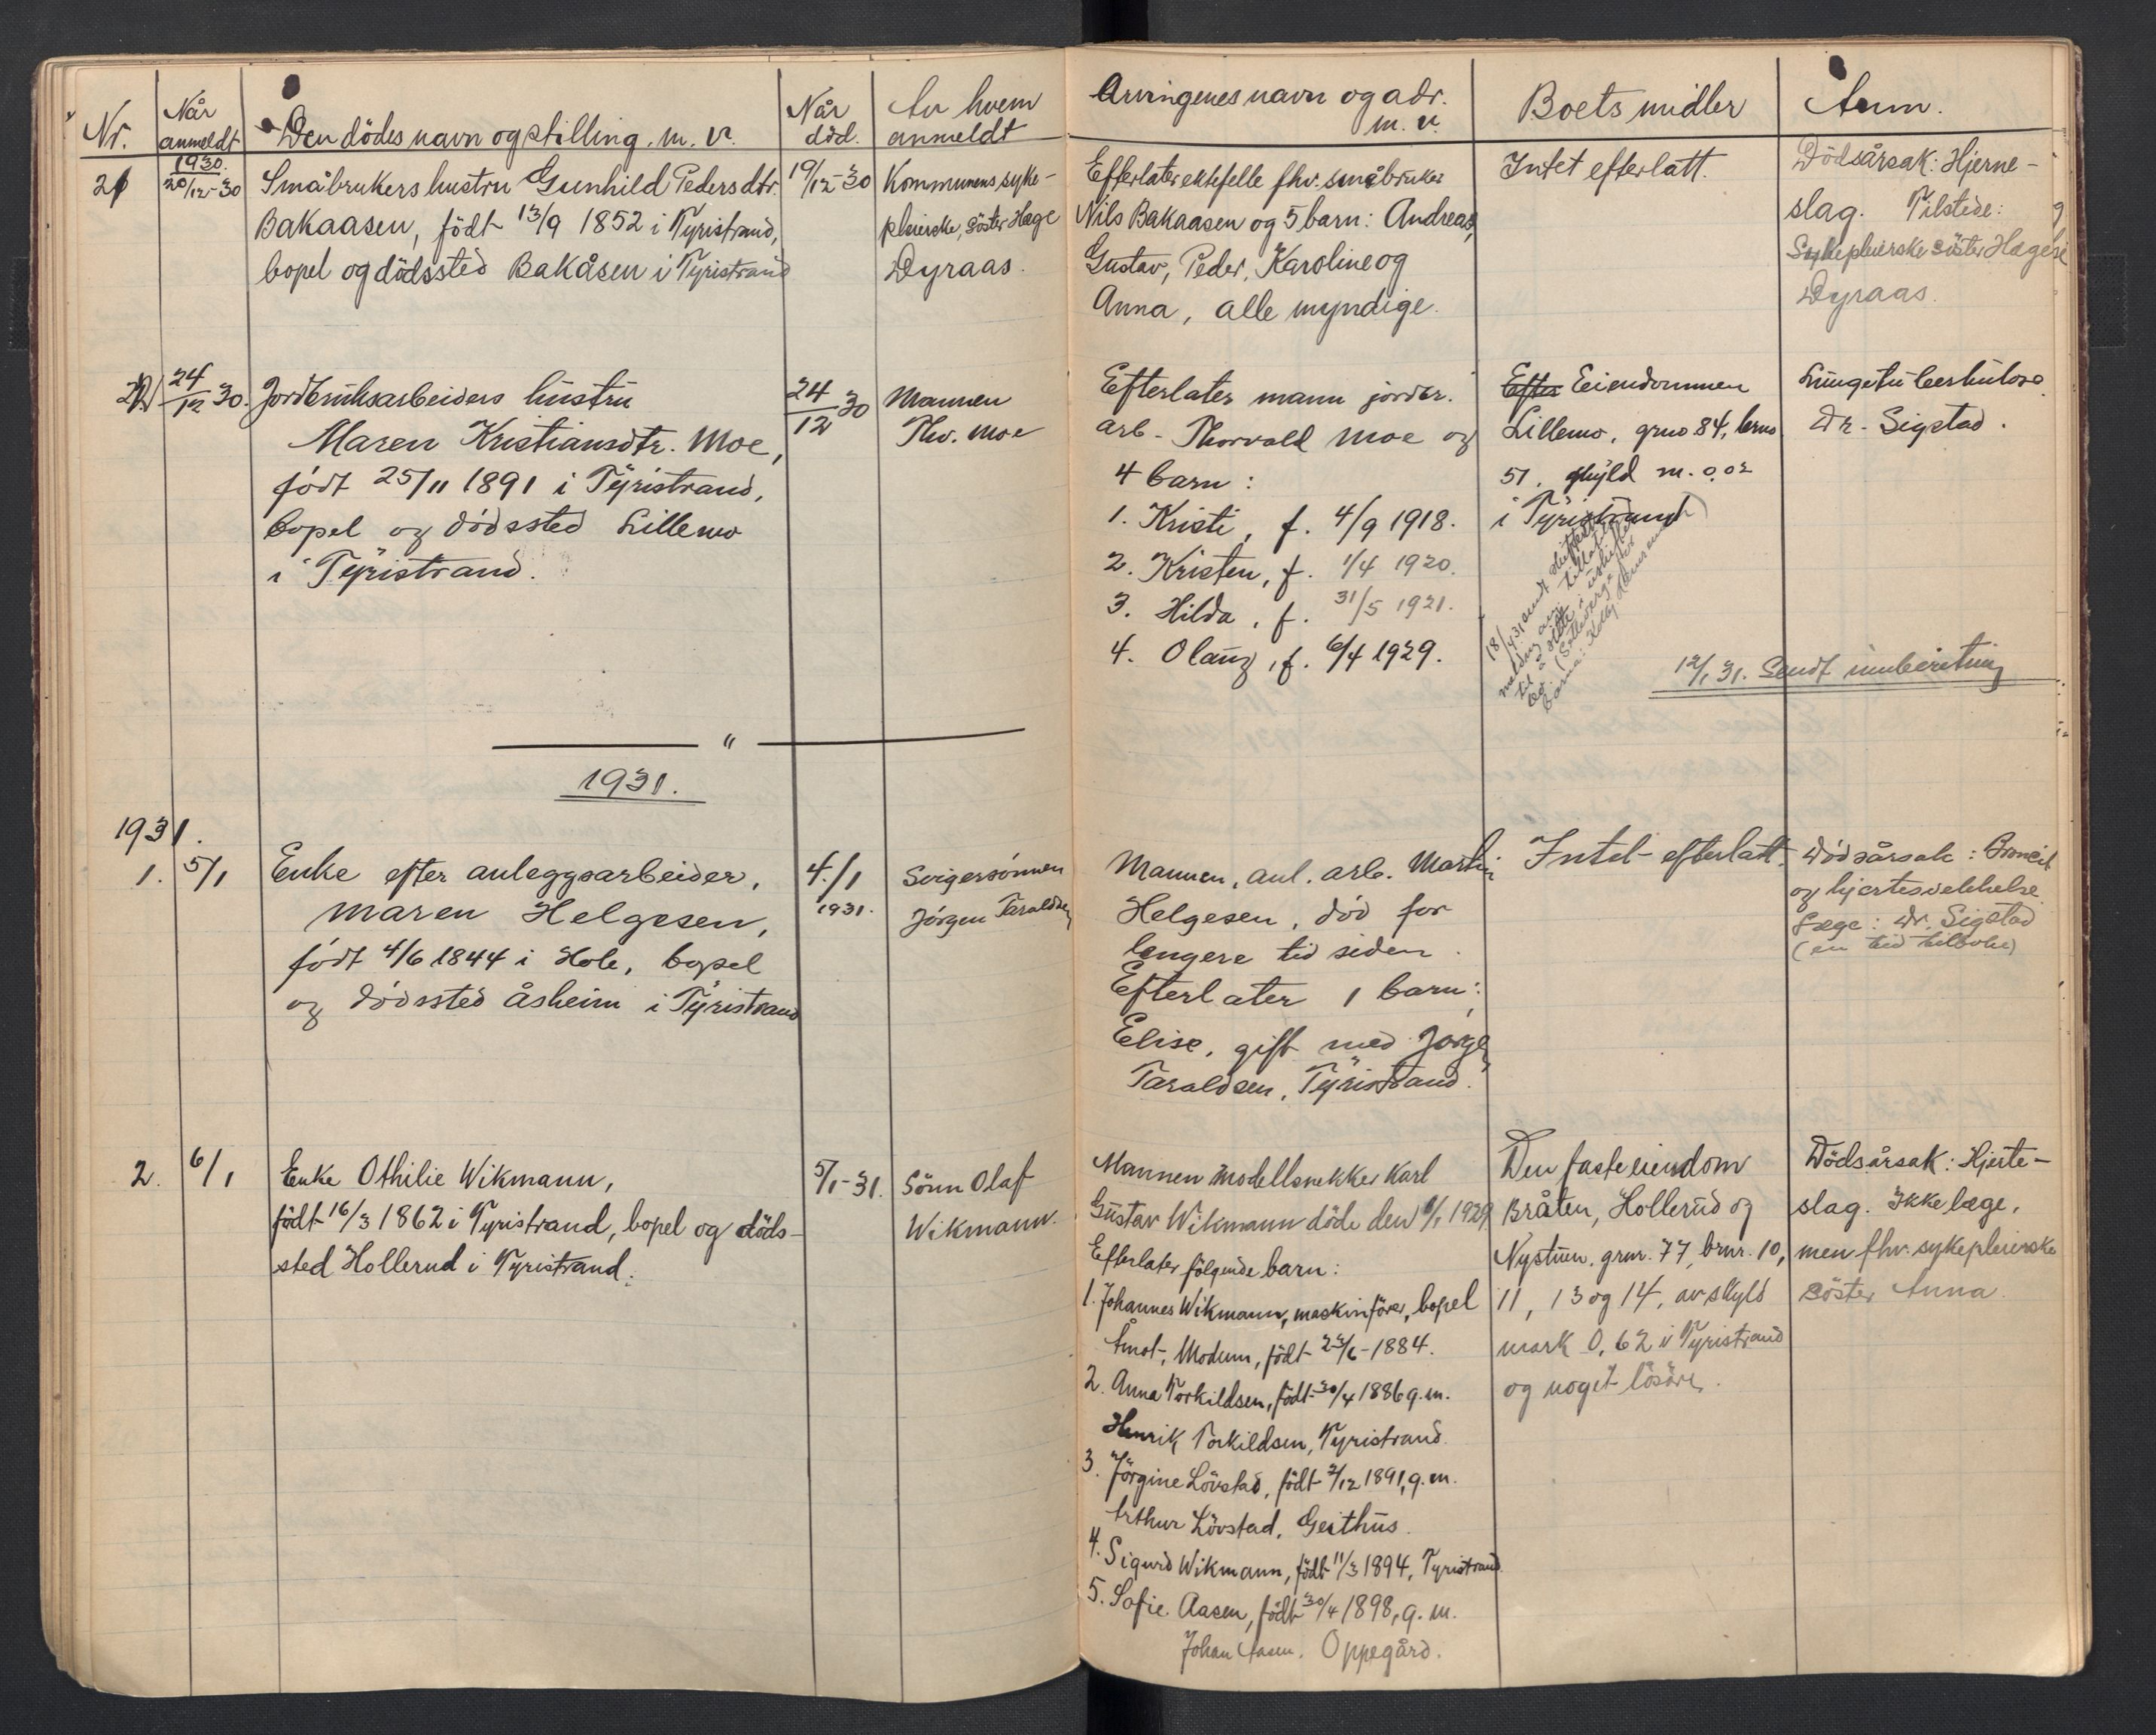 Nr.
Når
anmeldt
Den dödes navn og stilling. m. v.
Når
död.
Av hvem
anmeldt
1930.
21
20/12-30
Småbrukers hustru Gunhild Pedersdtr.
Bakaasen, födt 13/9 1852 i Tyristrand,
bopel og dödssted Bakåsen i Tyristrand
19/12-30
Kommunens syke-
pleierske, söster Hæge
Dyraas.
24/12 30.
Jordbruksarbeiders hustru
Maren Kristiansdtr. Moe,
födt 25/11 1891 i Tyristrand,
bopel og dödssted Lillemo
i Tyristrand.
24/12 30
Mannen
Thv. Moe
"
1931.
1931.
1.
5/1
Enke efter anleggsarbeider,
Maren Helgesen,
födt 4/6 1844 i Hole, bopel
og dödssted Åsheim i Tyristrand
4./1
1931.
Svigersönnen
Jörgen Taraldsen
2.
6/1
Enke Othilie Wikmann,
födt 16/3 1862 i Tyristrand, bopel og döds-
sted Hollerud i Tyristrand.
5/1-31.
Sönn Olaf
Wikmann.
Arvingenes navn og adr.
m. v.
Boets midler
Anm.
Efterlater ektefelle fhv. småbruker
Nils Bakaasen og 5 barn: Andreas,
Gustav, Peder, Karoline og
Anna, alle myndige.
Intet efterlatt.
Dödsårsak: Hjerne-
slag. Tilstede:
Sykepleierske söster
Dyraas.
Efterlater mann jordbr.
arb. Thorvald Moe og
4 barn:
1. Kristi, f. 4/9 1918.
2. Kristen, f. 1/4 1920.
3. Hilda, f. 31/5 1921.
4. Olaug, f. 6/4 1929.
Efter Eiendommen
Lillemo, grno 84, brno
51, skyld m. 0,02
i Tyristrand
Lungetuberkulose
Dr. Sigstad.
12/1 31. Sendt innberetning
Mannen, anl. arb. Martin
Helgesen, död for
lengere tid siden.
Efterlater 1 barn:
Elise, gift med Jörgen
Taraldsen, Tyristrand.
Intet efterlatt.
Dödsårsak:
og hjertesvekkelse.
Læge: Dr. Sigstad
(en tid tilbake)
Mannen modellsnekker Karl
Gustav Wikmann döde den 6/1 1929
Efterlater fölgende barn:
1. Johannes Wikmann, maskinförer, bopel
Åmot, Modum, födt 23/6-1884.
2. Anna Torkildsen, födt 30/4 1886 g. m.
Henrik Torkildsen, Tyristrand.
3. Jörgine Lövstad, födt 2/12 1891, g. m.
Arthur Lövstad, Geithus.
4. Sigurd Wikmann, födt 11/3 1894, Tyristrand.
5. Sofie Aasen, födt 30/4 1898, g. m.
Johan Aasen, Oppegård.
Den faste eiendom
Bråten, Hollerud og
Nystuen, grnr. 77, brnr. 10,
11, 13 og 14, av skyld
mark 0,62 i Tyristrand
og noget lösöre.
Dödsårsak: Hjerte-
slag. Ikke læge,
men fhv. sykepleierske
söster Anna.